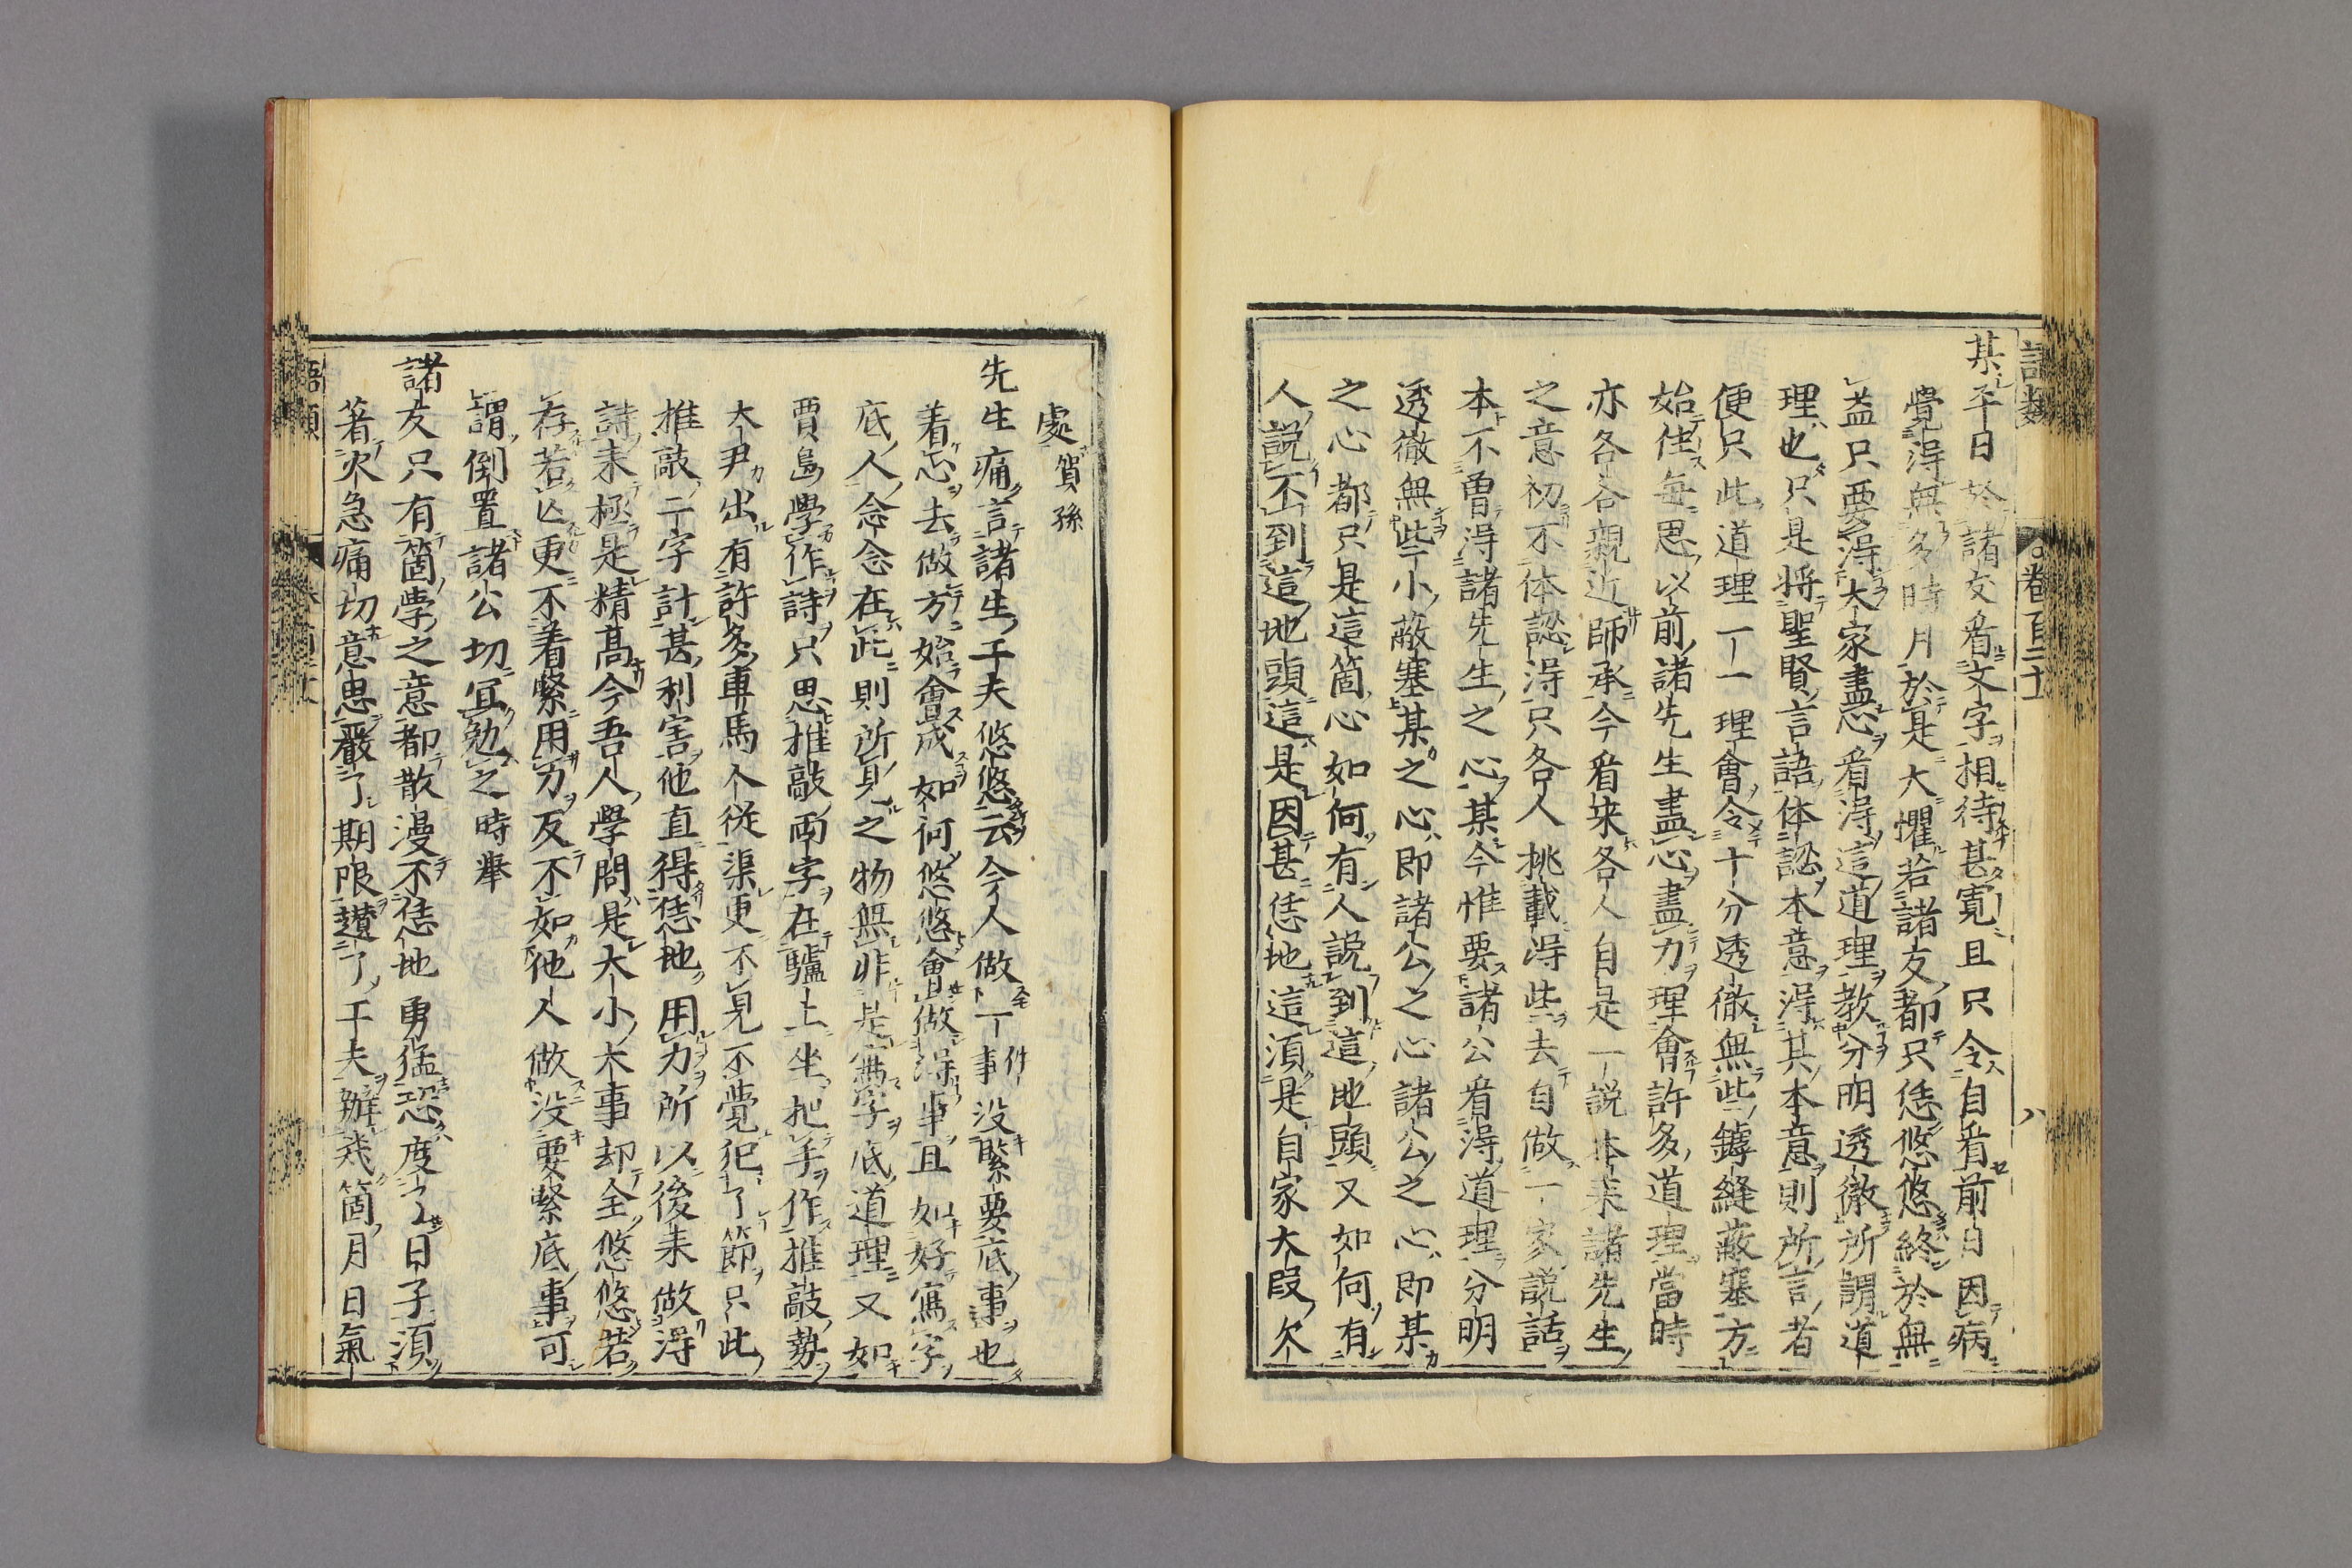 某平日於諸友看文字相待甚寬且只令自看前日因病
覺得無多時月於是大懼若諸友都只恁悠悠終於無
益只要得大家盡心看得這道理教分明透徹所謂道
理也只是将聖賢言語体認本意得其本意則所言者
便只此道理一一理會令十分透徹無些罅縫蔽塞方
始住每思以前諸先生盡心盡力理會許多道理當時
亦各各親近師承今看来各人自是一說本来諸先生
之意初不体認得只各人挑載得些去自做一家説話
本不曽得諸先生之心某今惟要諸公看得道理分明
透徹無些小蔽塞某之心即諸公之心諸公之心即某
之心都只是這箇心如何有人説到這地頭又如何有
人説不到這地頭這是因甚恁地這須是自家大叚欠
處賀孫
先生痛言諸生工夫悠悠云今人做一件事没緊要底事也
着心去做方始會成如何悠悠會做得事且如好寫字
底人念念在此則所見之物無非是寫字底道理又如
賈島學作詩只思推敲両字在驢上坐把手作推敲勢
大尹出有許多車馬人従渠更不見不覺犯了節只此
推敲二字計甚利害他直得恁地用力所以後来做得
詩来極是精高今吾人學問是大小大事却全悠悠若
存若亡更不着緊用力反不如他人做没要緊底事可
謂倒置諸公切冝勉之時舉
諸友只有箇學之意都散漫不恁地勇猛恐度了日子須
著火急痛切意思嚴了期限趲了工夫辦幾箇月日氣
語類
卷百二十一
八